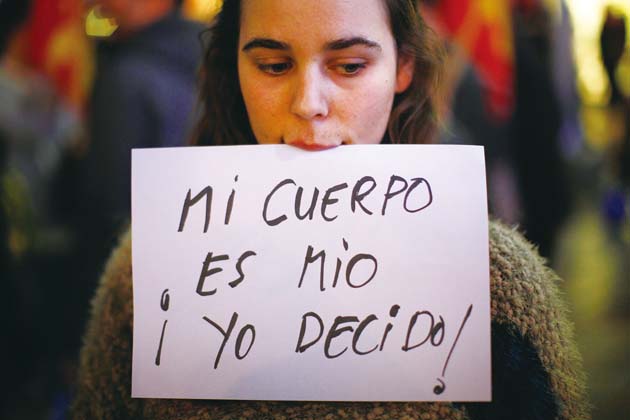 MI CUERPO
ES MIO
¡YO DECIDO!